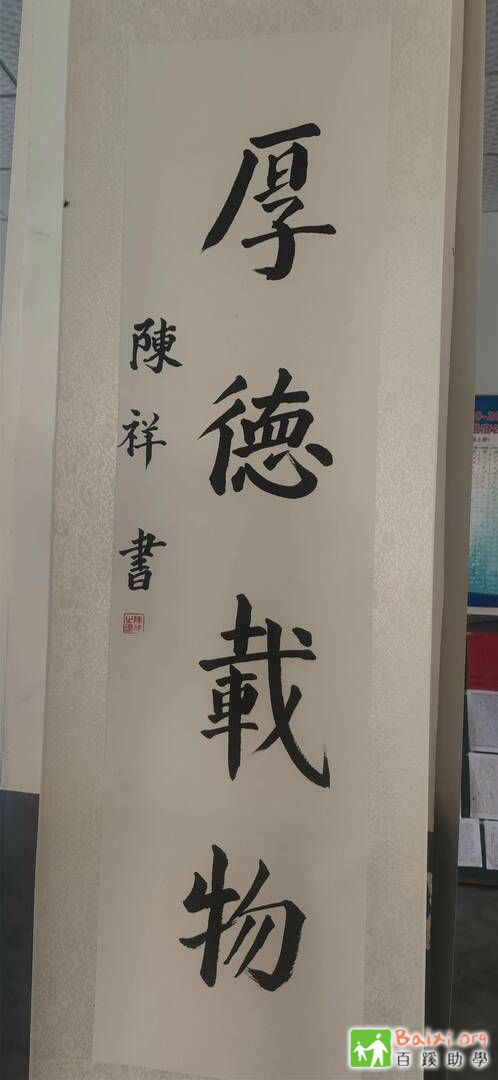 厚德載物
陳祥書
Baixi.org
百蹊助學